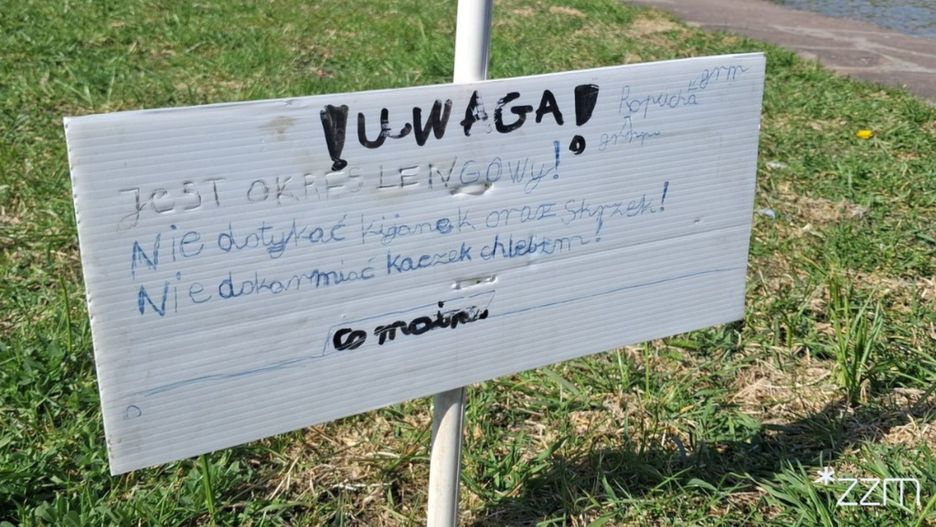 !UWAGA!
Ropucha
JEST OKRES LENGOWY!
Nie dotykać kijanek oraz Skrzek!
Nie dokarmiać kaczek chlebem!
co można
*zzm